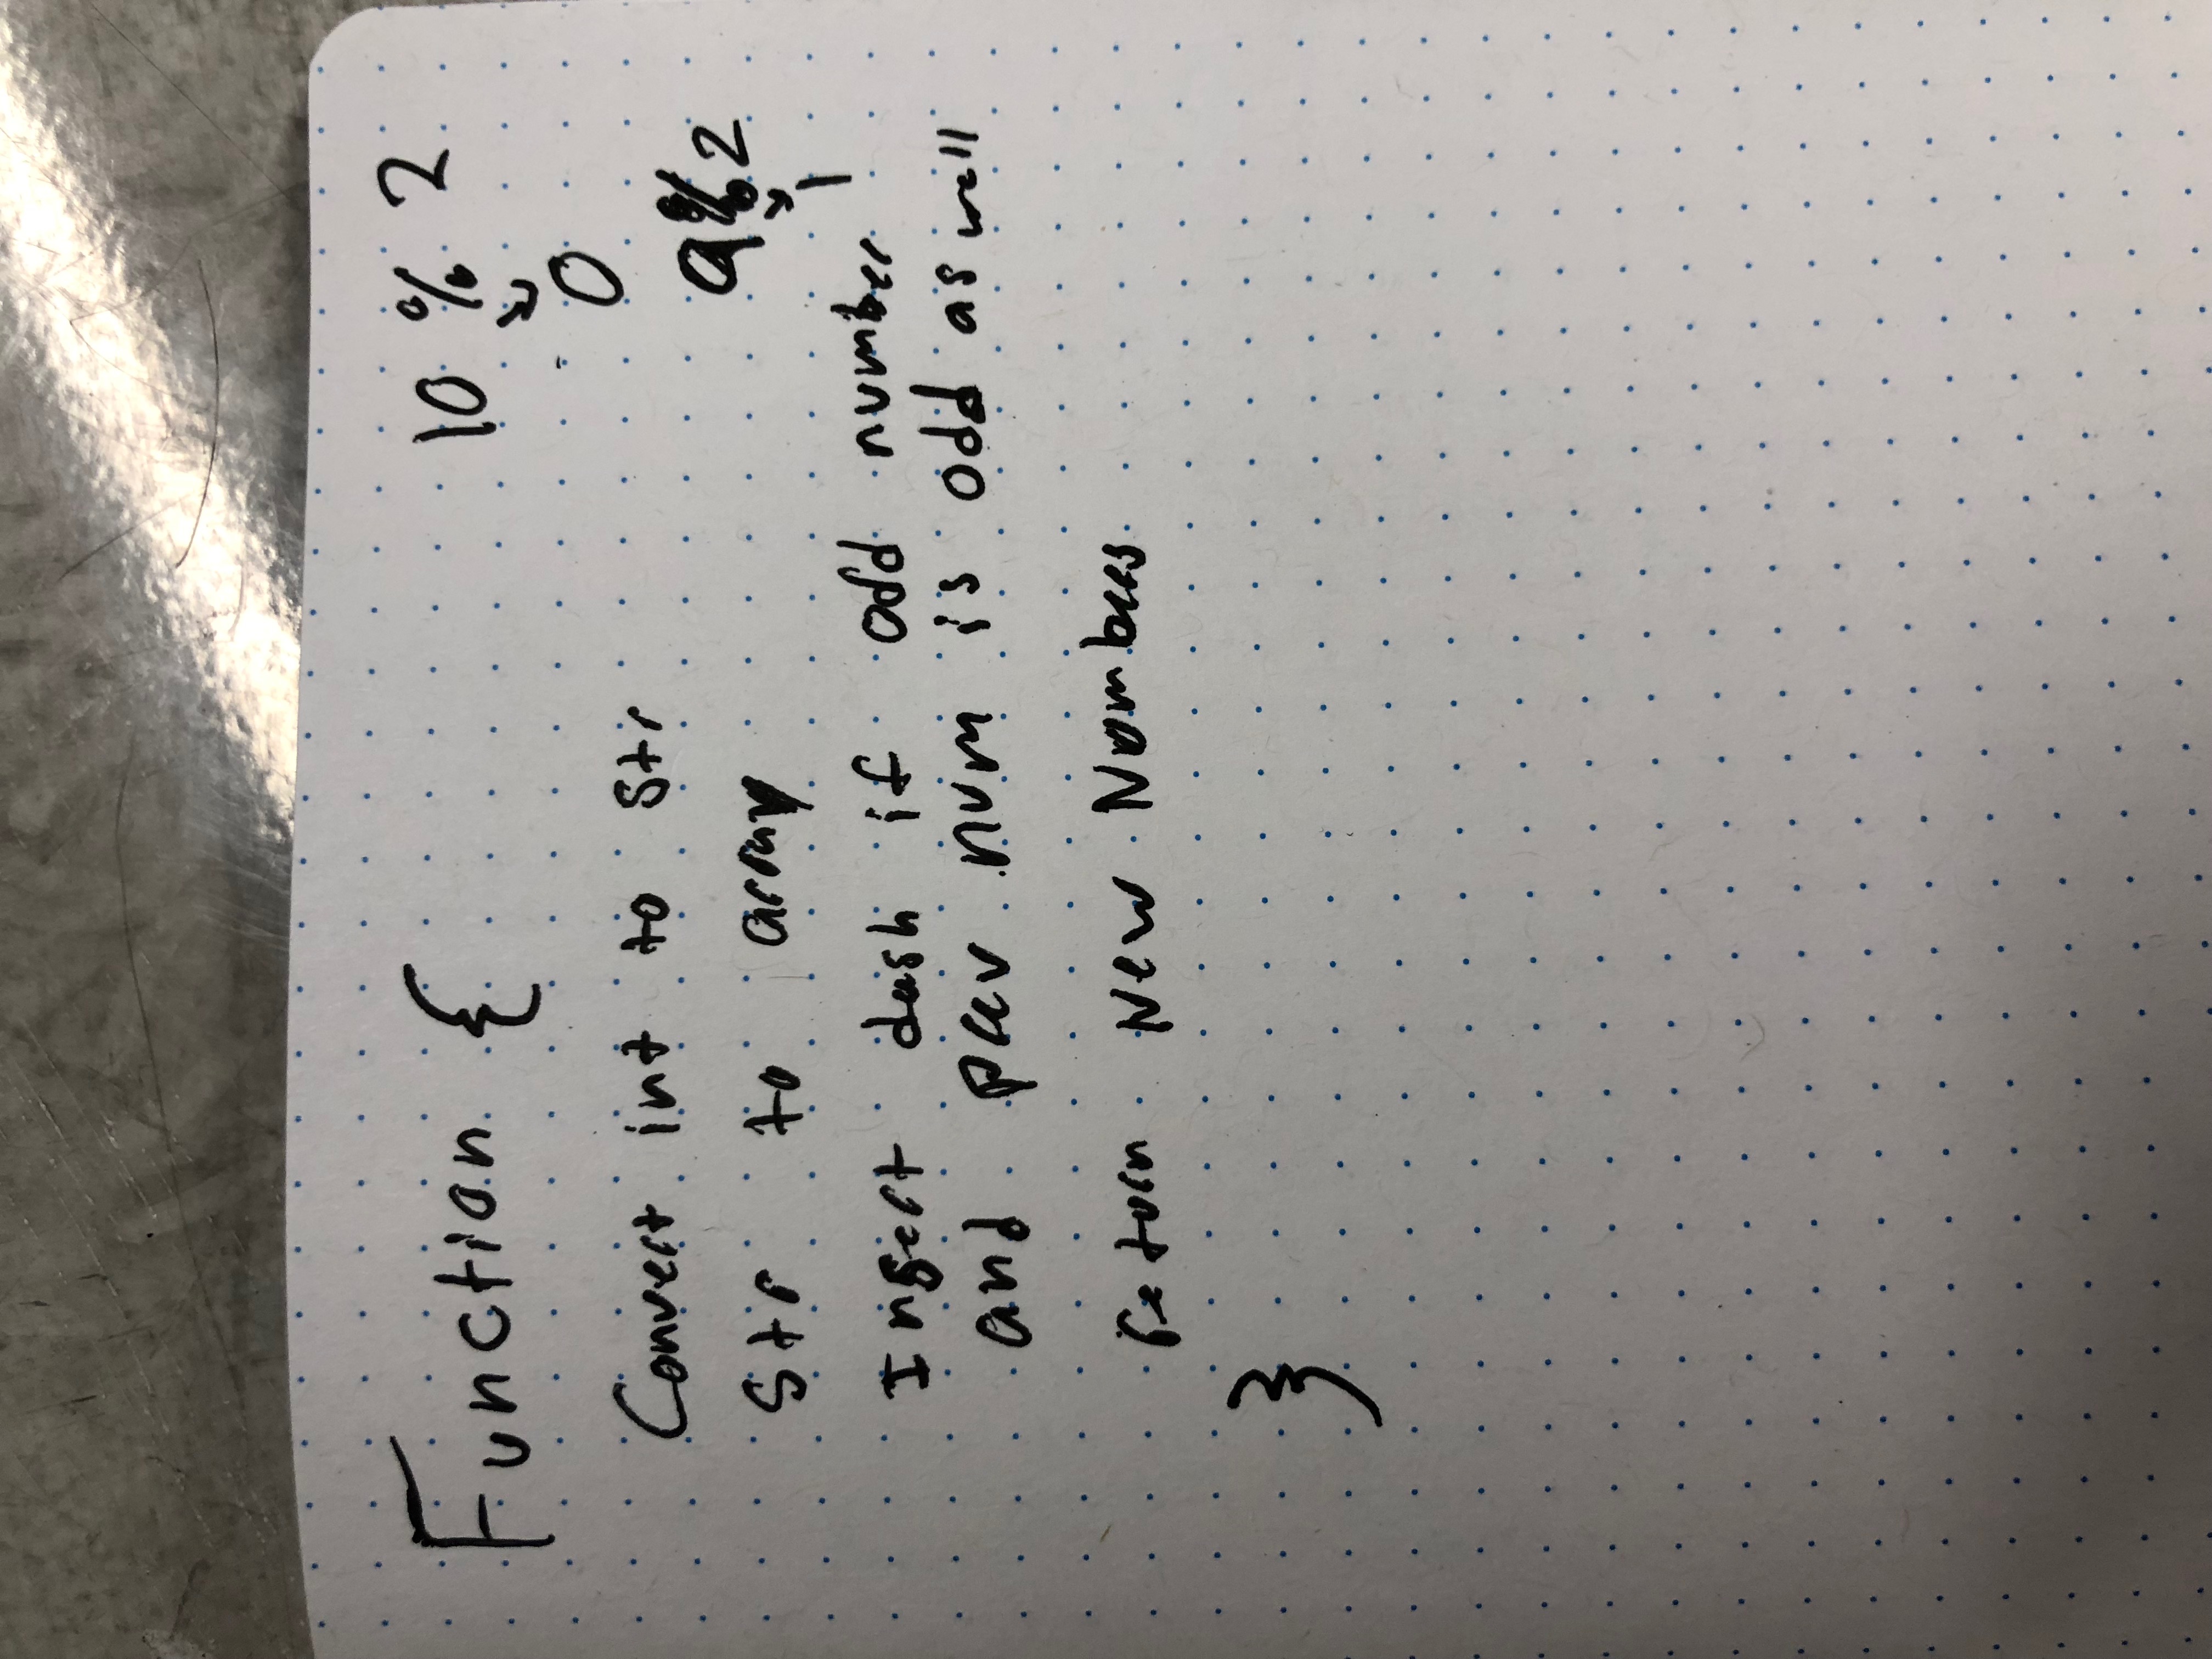 Function {
10 % 2
0
Convert int to Str
9%2
Str to array
1
Insert dash if odd number
and prev num is odd as well
return New Numbers
}